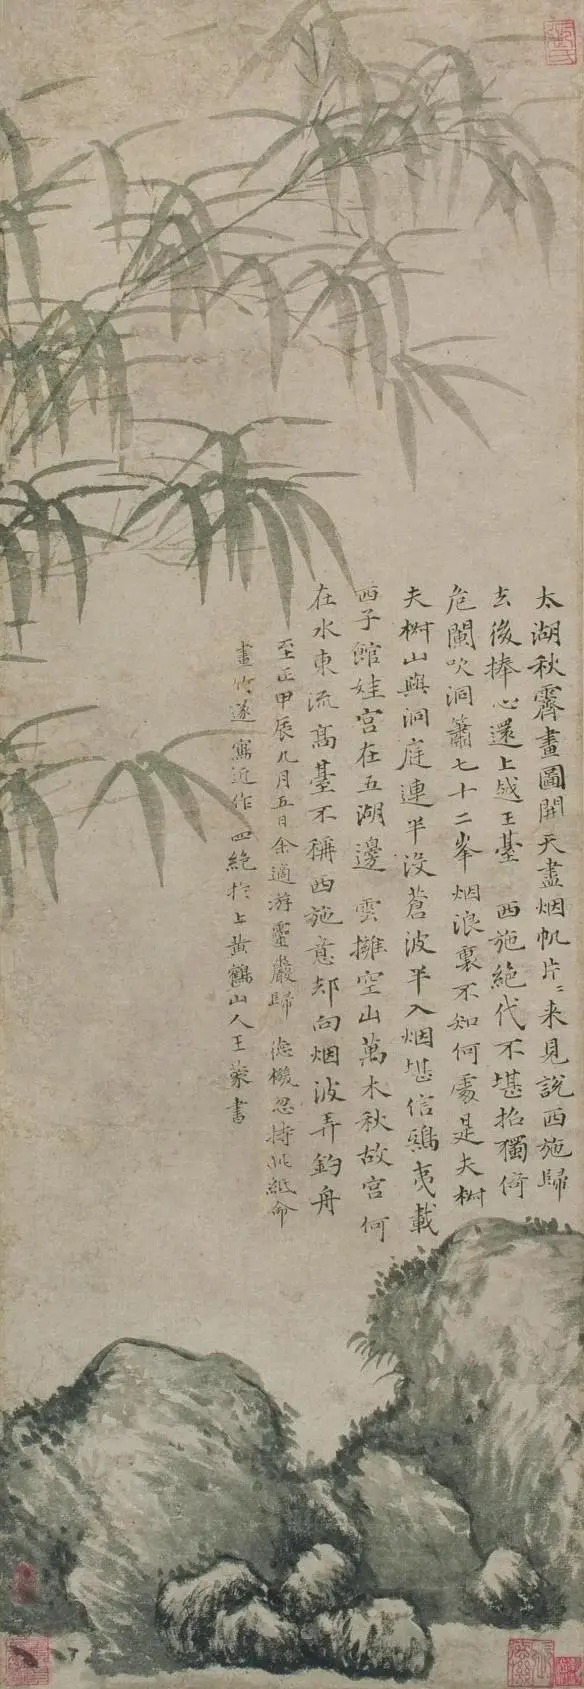 太湖秋霽畫圖開天盡烟帆片〻来見說西施歸
去後捧心還上越王臺 西施絶代不堪招獨倚
危闌吹洞簫七十二峯烟浪裏不知何處是夫椒
夫椒山與洞庭連半沒蒼波半入烟堪信鴟夷載
西子館娃宮在五湖邊 雲擁空山萬木秋故宮何
在水東流高臺不稱西施意却向烟波弄釣舟
至正甲辰九月五日余適游靈巖歸 德機忽持此紙命
畫竹遂寫近作四絶於上黃鶴山人王蒙書